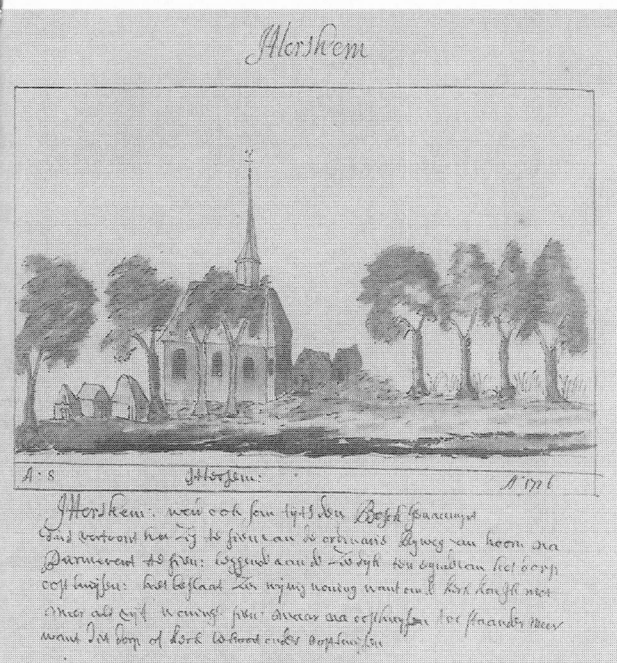 Etershem
A. 8
Etersem:
Ao 1726
Etershem: ook den Bosch genaemt
dus vertoont het zig te sien van de ordinaris Rijweg van hoorn na
Purmerent te sien: leggende aan de Zeedijk ten van het dorp
oosthuijsen: het beslaat Zeer wijnig woning want om de kerk
meer als vijf woninge sien maar na oosthuijsen toe staander meer
want dit dorp of kerk behoort onder oosthuijsen